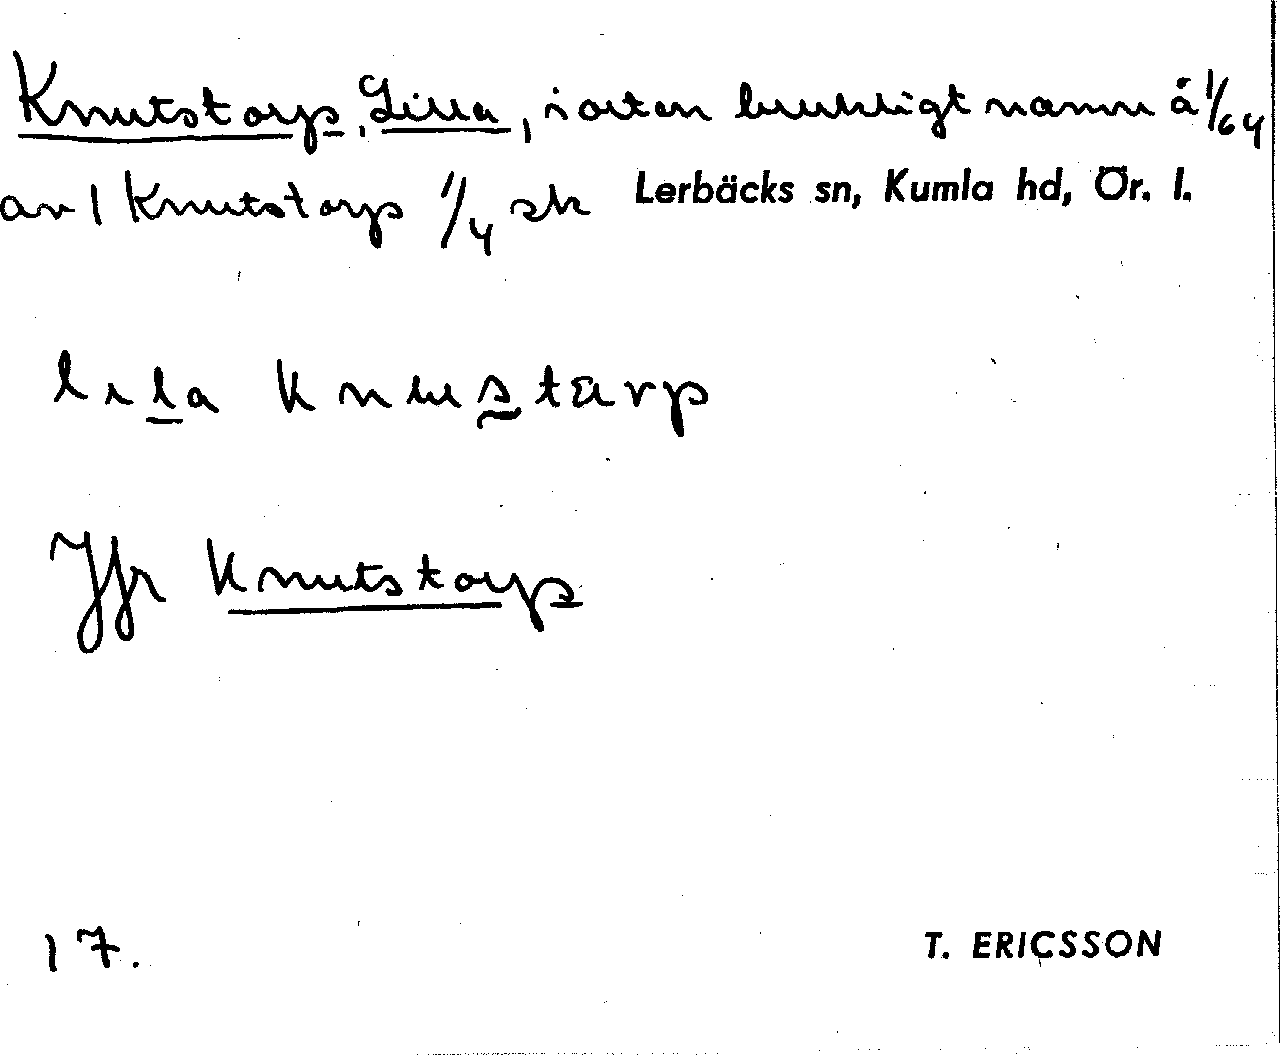 Knutstorp, Lilla, i orten brukligt namn å 1/64
av 1 Knutstorp 1/4 sk Lerbäcks sn, Kumla hd, Ör. l.
lila knustarp
Jfr Knutstorp
17. T. ERICSSON